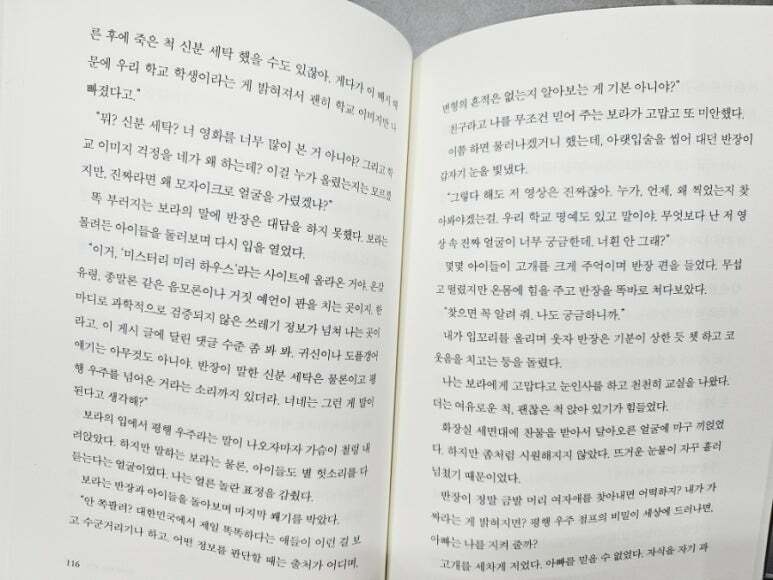 른 후에 죽은 척 신분 세탁 했을 수도 있잖아. 게다가 이 메시지 때
문에 우리 학교 학생이라는 게 밝혀져서 괜히 학교 이미지만 나
빠졌다고."
"뭐? 신분 세탁? 너 영화를 너무 많이 본 거 아니야? 그리고 학
교 이미지 걱정을 네가 왜 하는데? 이걸 누가 올렸는지는 모르겠
지만, 진짜라면 왜 모자이크로 얼굴을 가렸겠냐?"
똑 부러지는 보라의 말에 반장은 대답을 하지 못했다. 보라는
몰려든 아이들을 둘러보며 다시 입을 열었다.
"이거, '미스터리 미러 하우스'라는 사이트에 올라온 거야. 온갖
유령, 종말론 같은 음모론이나 거짓 예언이 판을 치는 곳이지. 한
마디로 과학적으로 검증되지 않은 쓰레기 정보가 넘쳐 나는 곳이
라고. 이 게시 글에 달린 댓글 수준 좀 봐 봐. 귀신이나 도플갱어
얘기는 아무것도 아니야. 반장이 말한 신분 세탁은 물론이고 평
행 우주를 넘어온 거라는 소리까지 있더라. 너네는 그런 게 말이
된다고 생각해?"
보라의 입에서 평행 우주라는 말이 나오자마자 가슴이 철렁 내
려앉았다. 하지만 말하는 보라는 물론, 아이들도 별 헛소리를 다
듣는다는 얼굴이었다. 나는 얼른 놀란 표정을 감췄다.
보라는 반장과 아이들을 돌아보며 마지막 쐐기를 박았다.
"안 쪽팔려? 대한민국에서 제일 똑똑하다는 애들이 이런 걸 보
고 수군거리기나 하고. 어떤 정보를 판단할 때는 출처가 어디며,
116
변형의 흔적은 없는지 알아보는 게 기본 아니야?"
친구라고 나를 무조건 믿어 주는 보라가 고맙고 또 미안했다.
이쯤 하면 물러나겠거니 했는데, 아랫입술을 씹어 대던 반장이
갑자기 눈을 빛냈다.
"그렇다 해도 저 영상은 진짜잖아. 누가, 언제, 왜 찍었는지 찾
아봐야겠는걸. 우리 학교 명예도 있고 말이야. 무엇보다 난 저 영
상 속 진짜 얼굴이 너무 궁금한데. 너흰 안 그래?"
몇몇 아이들이 고개를 크게 주억이며 반장 편을 들었다. 무섭
고 떨렸지만 온몸에 힘을 주고 반장을 똑바로 쳐다보았다.
"찾으면 꼭 알려 줘. 나도 궁금하니까."
내가 입꼬리를 올리며 웃자 반장은 기분이 상한 듯 쳇 하고 코
웃음을 치고는 등을 돌렸다.
나는 보라에게 고맙다고 눈인사를 하고 천천히 교실을 나왔다.
더는 여유로운 척, 괜찮은 척 앉아 있기가 힘들었다.
화장실 세면대에 찬물을 받아서 달아오른 얼굴에 마구 끼얹었
다. 하지만 좀처럼 시원해지지 않았다. 뜨거운 눈물이 자꾸 흘러
넘쳤기 때문이었다.
반장이 정말 금발 머리 여자애를 찾아내면 어떡하지? 내가 가
짜라는 게 밝혀지면? 평행 우주 점프의 비밀이 세상에 드러나면,
아빠는 나를 지켜 줄까?
고개를 세차게 저었다. 아빠를 믿을 수 없었다. 자식을 자기 과